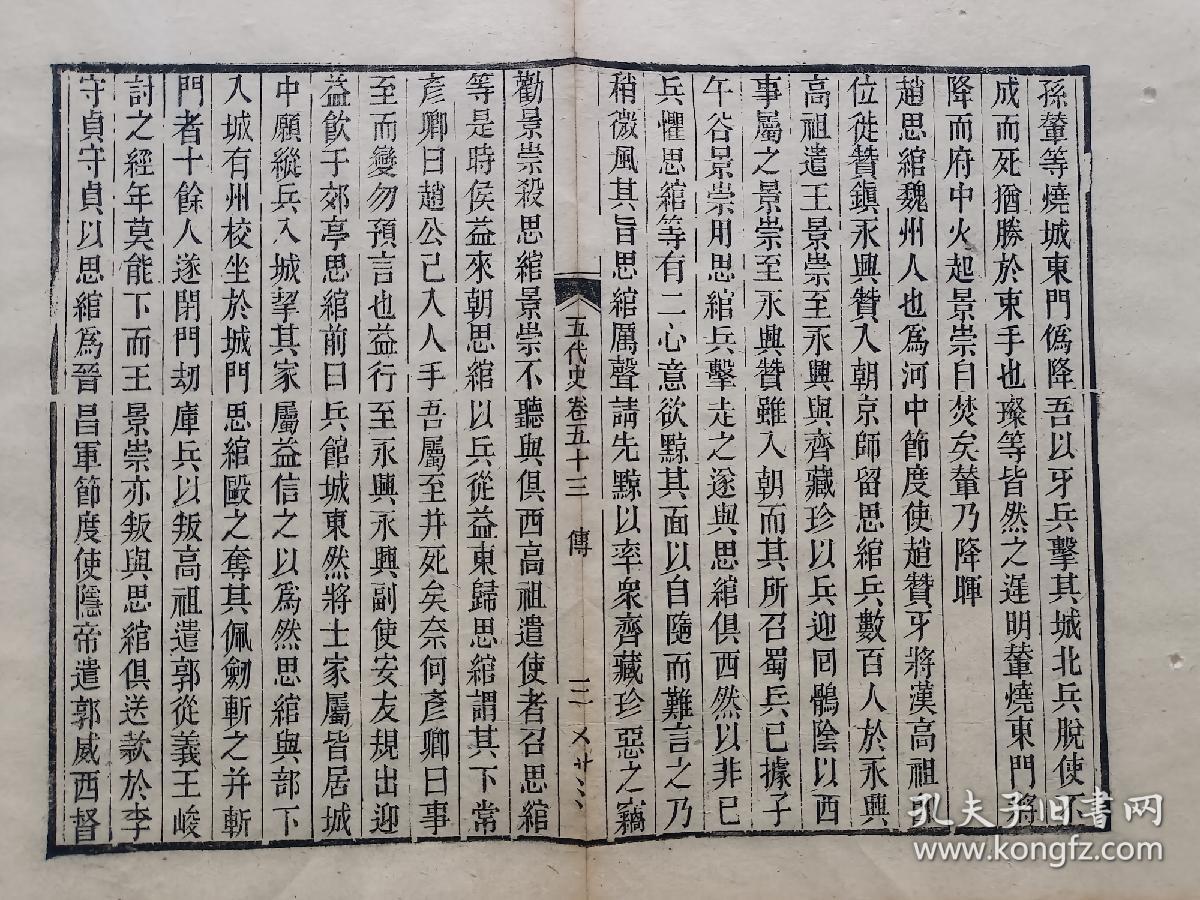 孫輦等燒城東門僞降吾以牙兵擊其城北兵脫使不
成而死猶勝於束手也璨等皆然之遲明輦燒東門將
降而府中火起景崇自焚矣輦乃降暉
趙思綰魏州人也爲河中節度使趙贊牙將漢高祖卽
位徙贊鎭永興贊入朝京師留思綰兵數百人於永興
高祖遣王景崇至永興與齊藏珍以兵迎回鶻陰以西
事屬之景崇至永興贊雖入朝而其所召蜀兵已據子
午谷景崇用思綰兵擊走之遂與思綰俱西然以非己
兵懼思綰等有二心意欲黥其面以自隨而難言之乃
稍微風其旨思綰厲聲請先黥以率衆齊藏珍惡之竊
五代史卷五十三 傳 三
勸景崇殺思綰景崇不聽與俱西高祖遣使者召思綰
等是時侯益來朝思綰以兵從益東歸思綰謂其下常
彥卿曰趙公已入人手吾屬至并死矣奈何彥卿曰事
至而變勿預言也益行至永興永興副使安友規出迎
益飮于郊亭思綰前曰兵館城東然將士家屬皆居城
中願縱兵入城挈其家屬益信之以爲然思綰與部下
入城有州校坐於城門思綰毆之奪其佩劒斬之并斬
門者十餘人遂閉門劫庫兵以叛高祖遣郭從義王峻
討之經年莫能下而王景崇亦叛與思綰俱送款於李
守貞守貞以思綰爲晉昌軍節度使隱帝遣郭威西督
孔夫子旧书网
www.kongfz.com